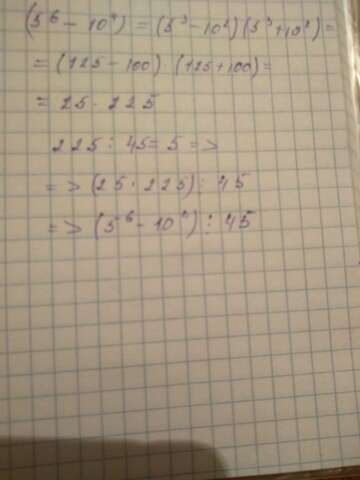 (5⁶ - 10⁴) = (5³ - 10²)(5³ + 10²) =
= (125 - 100) · (125 + 100) =
= 25 · 225
225 : 45 = 5 =>
=> (25 · 225) ⋮ 45
=> (5⁶ - 10⁴) ⋮ 45